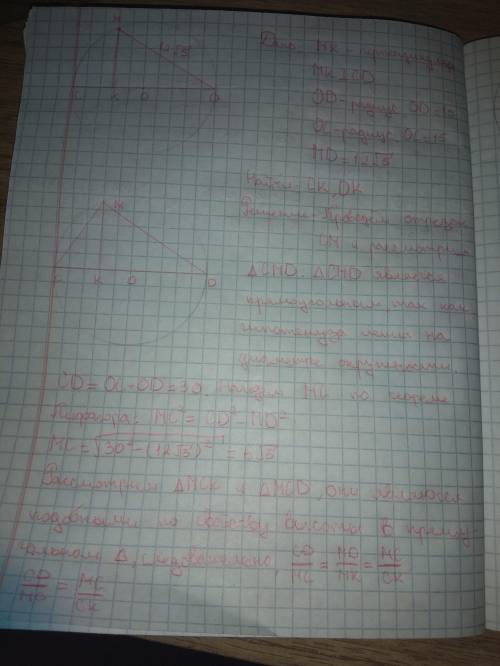 М
12√5
С К О D
Дано: МК – перпендикуляр
МК ⊥ CD
OD – радиус OD = 15
ОС – радиус ОС = 15
MD = 12√5
Найти: СК, DK
Решение: Проведем отрезок
СМ и рассмотрим
М
С К О D
△CMD. △CMD является
прямоугольным, так как
гипотенуза лежит на
диаметре окружности.
CD = OC + OD = 30. Находим МС по теореме
Пифагора: MC² = CD² – MD²
MC = √30² – (12√5)² = 6√5
Рассмотрим △MCK и △MCD, они являются
подобными по свойству высоты в прямоу
гольном △, следовательно, CD/MC = MD/MK = MC/CK
CD/MC = MC/CK